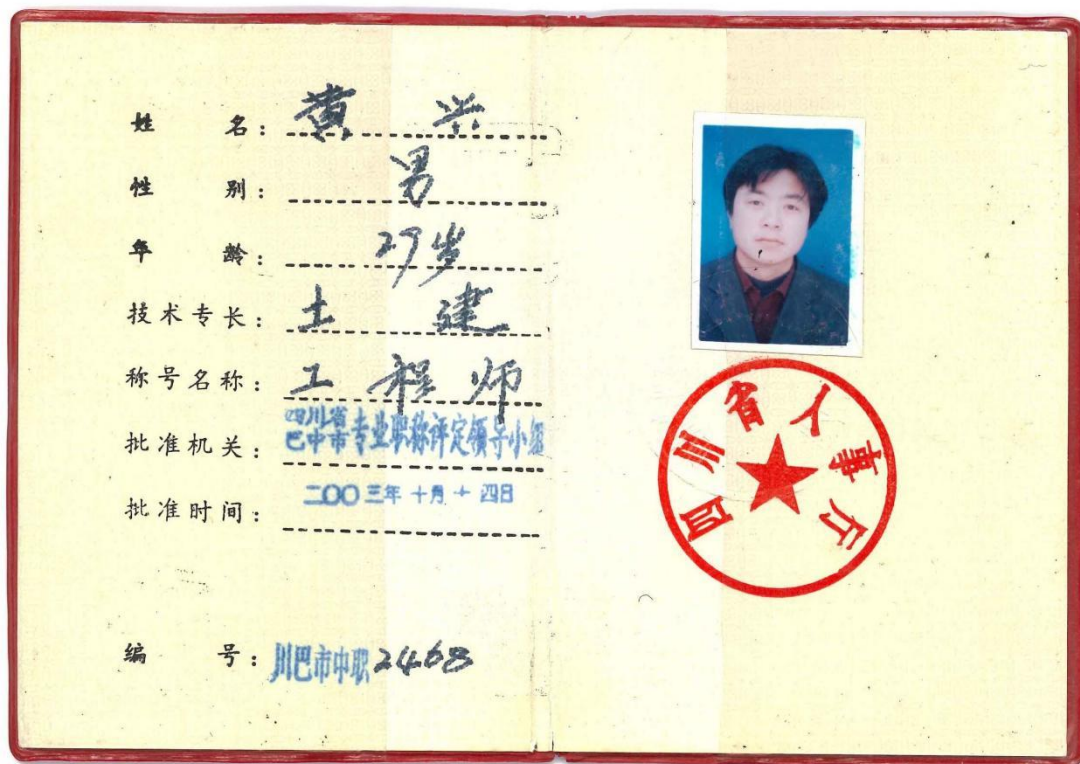 姓名：黄兴
性别：男
年龄：27岁
技术专长：土建
称号名称：工程师
批准机关：四川省巴中市专业职称评定领导小组
批准时间：二00三年十月十四日
编号：川巴市中职2468
四川省人事厅